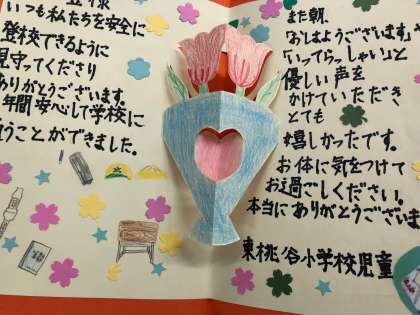 様
いつも私たちを安全に
登校できるように
見守ってくださり
ありがとうございます。
年間安心して学校に
通うことができました。
また朝、
「おはようございます」や
「いってらっしゃい」と
優しい声を
かけていただき
とても
嬉しかったです。
お体に気をつけて
お過ごしください。
本当にありがとうございま
東桃谷小学校児童